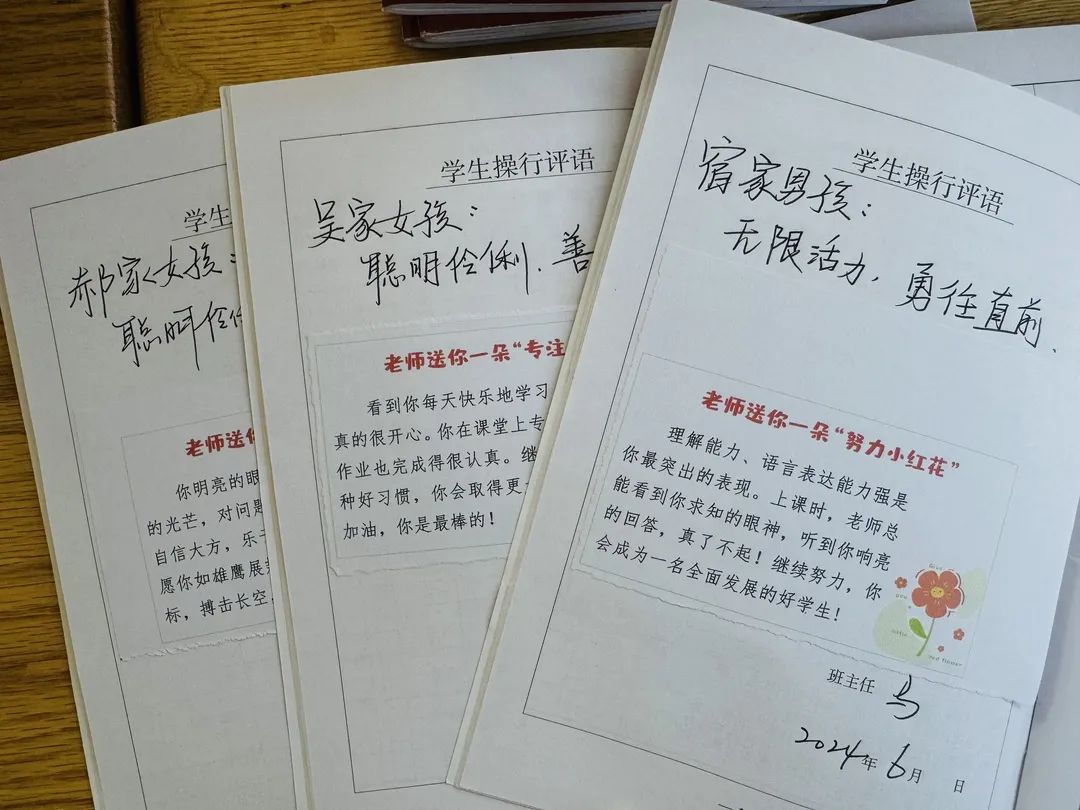 学生
郝家女孩：
聪明伶
老师送你
你明亮的眼
的光芒，对问题
自信大方，乐于
愿你如雄鹰展
标，搏击长空
学生操行评语
吴家女孩：
聪明伶俐、善
老师送你一朵“专注
看到你每天快乐地学习
真的很开心。你在课堂上专
作业也完成得很认真。继
种好习惯，你会取得更
加油，你是最棒的！
学生操行评语
宿家男孩：
无限活力，勇往直前、
老师送你一朵“努力小红花”
理解能力、语言表达能力强是
你最突出的表现。上课时，老师总
能看到你求知的眼神，听到你响亮
的回答，真了不起！继续努力，你
会成为一名全面发展的好学生！
Give
you
red flower
班主任 马
2024年6月 日